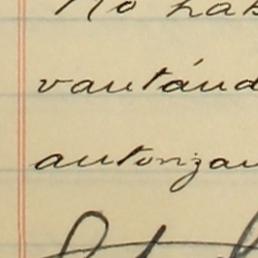 No hab
vantánd
autorizan